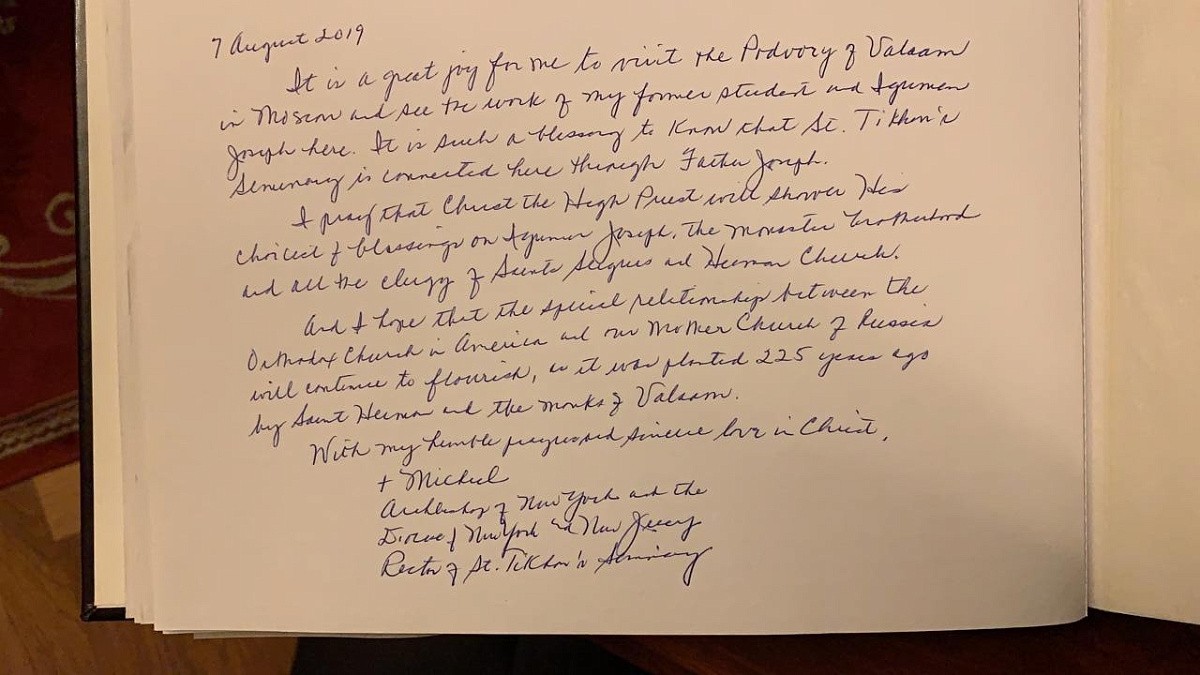 7 August 2019
It is a great joy for me to visit the Podvory of Valaam
in Moscow and see the work of my former student and Igumen
Joseph here. It is such a blessing to know that St. Tikhon's
Seminary is connected here through Father Joseph.
I pray that Christ the High Priest will shower His
choicest blessings on Igumen Joseph, the monastic brotherhood
and all the clergy of Saints Sergius and Herman Church.
And I hope that the special relationship between the
Orthodox Church in America and our Mother Church of Russia
will continue to flourish, as it was planted 225 years ago
by Saint Herman and the monks of Valaam.
With my humble prayers and sincere love in Christ,
+ Michael
Archbishop of New York and the
Diocese of New York and New Jersey
Rector of St. Tikhon's Seminary